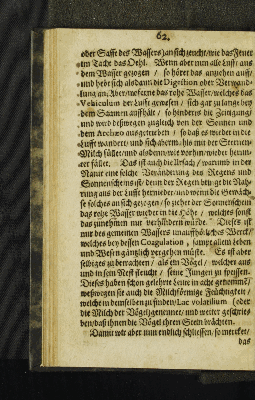 62.
oder Safft des Wassers) an sich zeucht / wie das Feuer
im Tacht das Oehl. Wenn aber nun alle Lufft aus
dem Wasser gezogen / so höret das anziehen auff /
und hebt sich alsdann die Digestion oder Verwand-
lung an. Aber / wofern das rohe Wasser / welches das
Vehiculum der Lufft gewesen / sich gar zu lange bey
dem Saamen auffhält / so hinderts die Zeitigung /
und wird deswegen zugleich von der Sonnen und
dem Archæo ausgetrieben / so daß es wieder in die
Lufft wandert / und sich
Milch füllet / und alsdenn / wie vorhin / wieder herun-
ter fället. Das ist auch die Ursach / warumb in der
Natur eine solche Veränderung des Regens und
Sonnenscheins ist: denn der Regen bringt die Nah-
rung aus der Lufft hernieder: und wenn die Gewäch-
se solches an sich gezogen / so ziehet der Sonnenschein
das rohe Wasser wieder in die Höhe / welches sonst
das zunehmen nur verhindern würde. Dieses ist
nur des gemeinen Wassers unauffhörliches Werck /
welches bey dessen Coagulation, sampt allem Leben
und Wesen gäntzlich vergehen müste. Es ist aber
selbiges zu betrachten / als ein Vogel / welcher aus
und in sein Nest fleucht / seine Jungen zu speissen.
Dieses haben schon gelehrte Leute in acht genommen /
weßwegen sie auch die Milchförmige Feuchtigkeit /
welche in demselben zu finden / Lac volatilium (oder
die Milch der Vögel) genennet / und weiter geschrie-
ben / daß ihnen die Vögel ihren Stein brächten.
Damit wir aber nun endlich schliessen / so mercket /
das